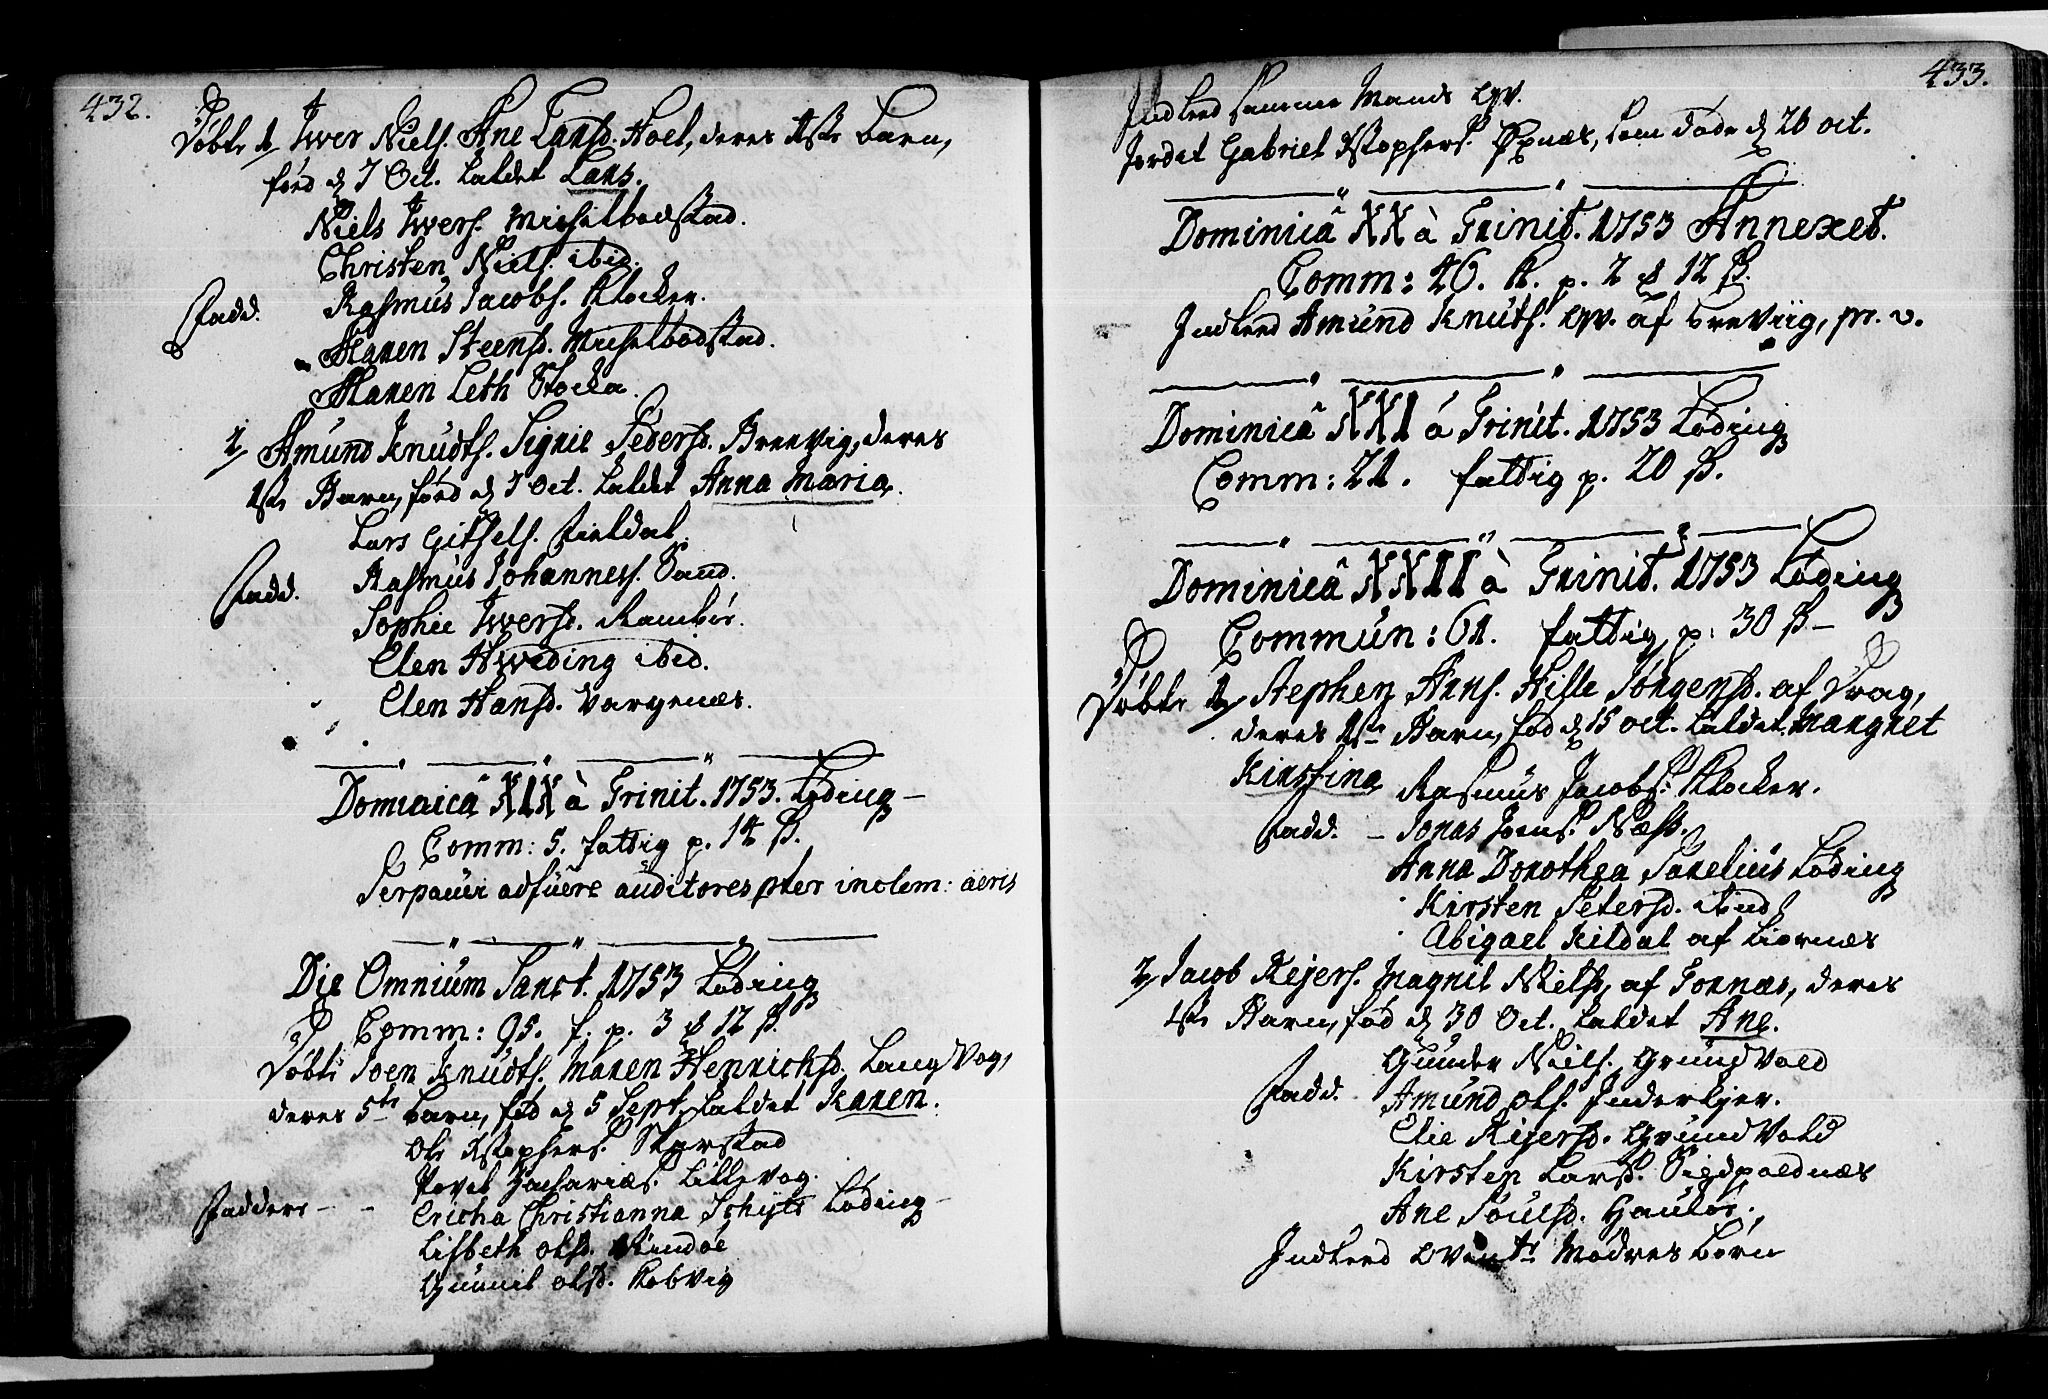 432.
Döbt 1/ Iwer Niels. Ane Larsd. Hoel, deres 1ste barn,
fød d 7 Oct. kaldet Lars.
Niels Iwers. Michelbodstad.
Christen Niels. ibid.
Fadd. Rasmus Jacobs. Klocker.
Maren Steensd. Michelbodstad.
Maren Leth Stocka.
2/ Amund Knudts. Signil Pedersd. Breevig, deres
1ste Barn, fød d 7 Oct. kaldet Anna Maria.
Lars Gitsels. Fieldal.
Fadd. Rasmus Johanness. Sand.
Sophie Iwersd.
Elen Hweding ibid.
Elen Hansd. Vargenæs.
Dominicâ XIX à Trinit. 1753. Löding
Comm: 5. fattig p. 14 ß.
Perpauci adfuere auditores pter inclem: äeris
Die Omnium Sanct. 1753 Löding
Comm: 95. f. p. 3 12 ß.
Döbt Joen Knudts. Maren Henrichsd. LangVog,
deres 5te barn, fød d 5 Sept. kaldet Karen.
Ole Xstophers. Skarstad
Povel Zacharias. Lillevog.
Faddere - - Ericha Christianna Schytte Löding
Lisbeth Olsd. Rindøe
Gunnil Olsd. Robvig
433.
Indleed samme Mands
Jordet Gabriel Xstophers. Øxnæs, som døde d 26 oct.
Dominicâ XX à Trinit. 1753 Annexet.
Comm: 46. K. p. 2 12 ß.
Indleed Amund Knuts. af Brevig, pr. v.
Dominicâ XXI á Trinit. 1753 Löding
Comm: 21. fattig p. 20 ß.
Dominicâ XXII à Trinit. 1753 Löding
Commun: 61. fattig p. 30 ß -
Döbt 1/ Stephen Arns. Hille Jörgensd. af Drag,
deres 1ste Barn, fød d 15 oct. kaldet Margret
Kirstina Rasmus Jacobs. Klocker.
Fadd. - Jonas Joens. Næss.
Anna Dorothea Parelius Löding
Kirsten Petersd. ibid
Abigael Kildal af Liornæs
2/ Jacob Reyers. Magnil Nielsd. af Fornæs, deres
1ste Barn, fød d 30 Oct. kaldet Ane.
Gunder Niels. GrundVold
Fadd. Amund Ols. Inderkier.
Elie Reyersd. GrundVold
Kirsten Larsd. Sigpoldnæs
Ane Poulsd.
Indleed Mødres börn